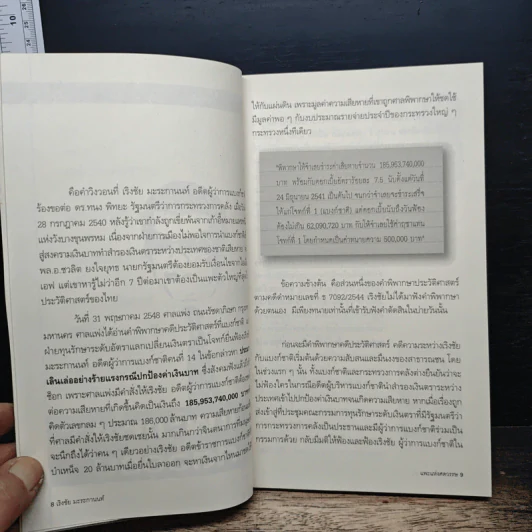 คือคำวิงวอนที่ เริงชัย มะระกานนท์ อดีตผู้ว่าการแบงก์
ร้องขอต่อ ดร.ทนง พิทยะ รัฐมนตรีว่าการกระทรวงการคลัง เมื่อวัน
28 กรกฎาคม 2540 หลังรู้ว่าเขากำลังถูกเขี่ยพ้นจากเก้าอี้
แห่งวังบางขุนพรหม เนื่องจากฝ่ายการเมืองไม่พอใจการนำแบงก์
สู่สงครามเงินบาททำสำรองเงินตราระหว่างประเทศของชาติเสียหาย
พล.อ.ชวลิต ยงใจยุทธ นายกรัฐมนตรีต้องยอมรับเงื่อนไขจาก
เอฟ แต่เขาหารู้ไม่ว่าอีก 7 ปีต่อมาเขาต้องเป็นแพะตัวใหญ่
ประวัติศาสตร์ของไทย
วันที่ 31 พฤษภาคม 2548 ศาลแพ่ง ถนนรัชดาภิเษก
มหานคร ศาลแพ่งได้อ่านคำพิพากษาคดีประวัติศาสตร์ที่แบงก์ชาติ
ฝ่ายทุนรักษาระดับอัตราแลกเปลี่ยนเงินตราเป็นโจทก์ยื่นฟ้อง
มะระกานนท์ อดีตผู้ว่าการแบงก์ชาติคนที่ 14 ในข้อกล่าวหา ประ
เลินเล่ออย่างร้ายแรงกรณีปกป้องค่าเงินบาท ซึ่งสังคม
ช็อก เพราะศาลแพ่งมีคำสั่งให้เริงชัย อดีตผู้ว่าการแบงก์ชาติ
ต่อความเสียหายที่เกิดขึ้นคิดเป็นเงินถึง 185,953,740,000 บาท
คิดตัวเลขกลม ๆ ประมาณ 186,000 ล้านบาท ความเสียหายก้อน
ที่ศาลมีคำสั่งให้เริงชัยชดเชยเงินนั้น มากเกินกว่าจินตนาการที่
จะนึกถึงได้ว่าคน ๆ เดียวอย่างเริงชัย อดีตข้าราชการแบงก์ชาติ
บำเหน็จ 20 ล้านบาทเมื่อยื่นใบลาออก จะหาเงินจากไหนมา
8 เริงชัย มะระกานนท์
ให้กับแผ่นดิน เพราะมูลค่าความเสียหายที่เขาถูกศาลพิพากษาให้ชดใช้
มีมูลค่าพอ ๆ กับงบประมาณรายจ่ายประจำปีของกระทรวงใหญ่ ๆ
กระทรวงหนึ่งทีเดียว
"พิพากษาให้จำเลยชำระค่าเสียหายจำนวน 185,953,740,000
บาท พร้อมกับดอกเบี้ยอัตราร้อยละ 7.5 นับตั้งแต่วันที่
24 มิถุนายน 2541 เป็นต้นไป จนกว่าจำเลยจะชำระเสร็จ
ให้แก่โจทก์ที่ 1 (แบงก์ชาติ) แต่ดอกเบี้ยนับถึงวันฟ้อง
ต้องไม่เกิน 62,090,720 บาท กับให้จำเลยใช้ค่าทนายแทน
โจทก์ที่ 1 โดยกำหนดเป็นค่าทนายความ 500,000 บาท"
ข้อความข้างต้น คือส่วนหนึ่งของคำพิพากษาประวัติศาสตร์
ตามคดีดำหมายเลขที่ ธ 7092/2544 เริงชัยไม่ได้มาฟังคำพิพากษา
ด้วยตนเอง มีเพียงทนายเท่านั้นที่เข้ารับฟังคำตัดสินในบ่ายวันนั้น
ก่อนจะมีคำพิพากษาคดีประวัติศาสตร์ คดีความระหว่างเริงชัย
กับแบงก์ชาติเริ่มต้นด้วยความสับสนและมึนงงของสาธารณชน โดย
ในช่วงแรก ๆ นั้น ทั้งแบงก์ชาติและกระทรวงการคลังต่างยืนยันว่าจะ
ไม่ฟ้องใครในกรณีอดีตผู้บริหารแบงก์ชาตินำสำรองเงินตราระหว่าง
ประเทศเข้าไปปกป้องค่าเงินบาทจนเกิดความเสียหาย หากเมื่อเรื่องถูก
ส่งเข้าสู่ที่ประชุมคณะกรรมการทุนรักษาระดับเงินตราที่มีรัฐมนตรีว่า
การกระทรวงการคลังเป็นประธานและผู้ว่าการแบงก์ชาติร่วมเป็น
กรรมการด้วย กลับมีมติให้ฟ้องและฟ้องเริงชัย ผู้ว่าการแบงก์ชาติใน
แพะแห่งศตวรรษ 9